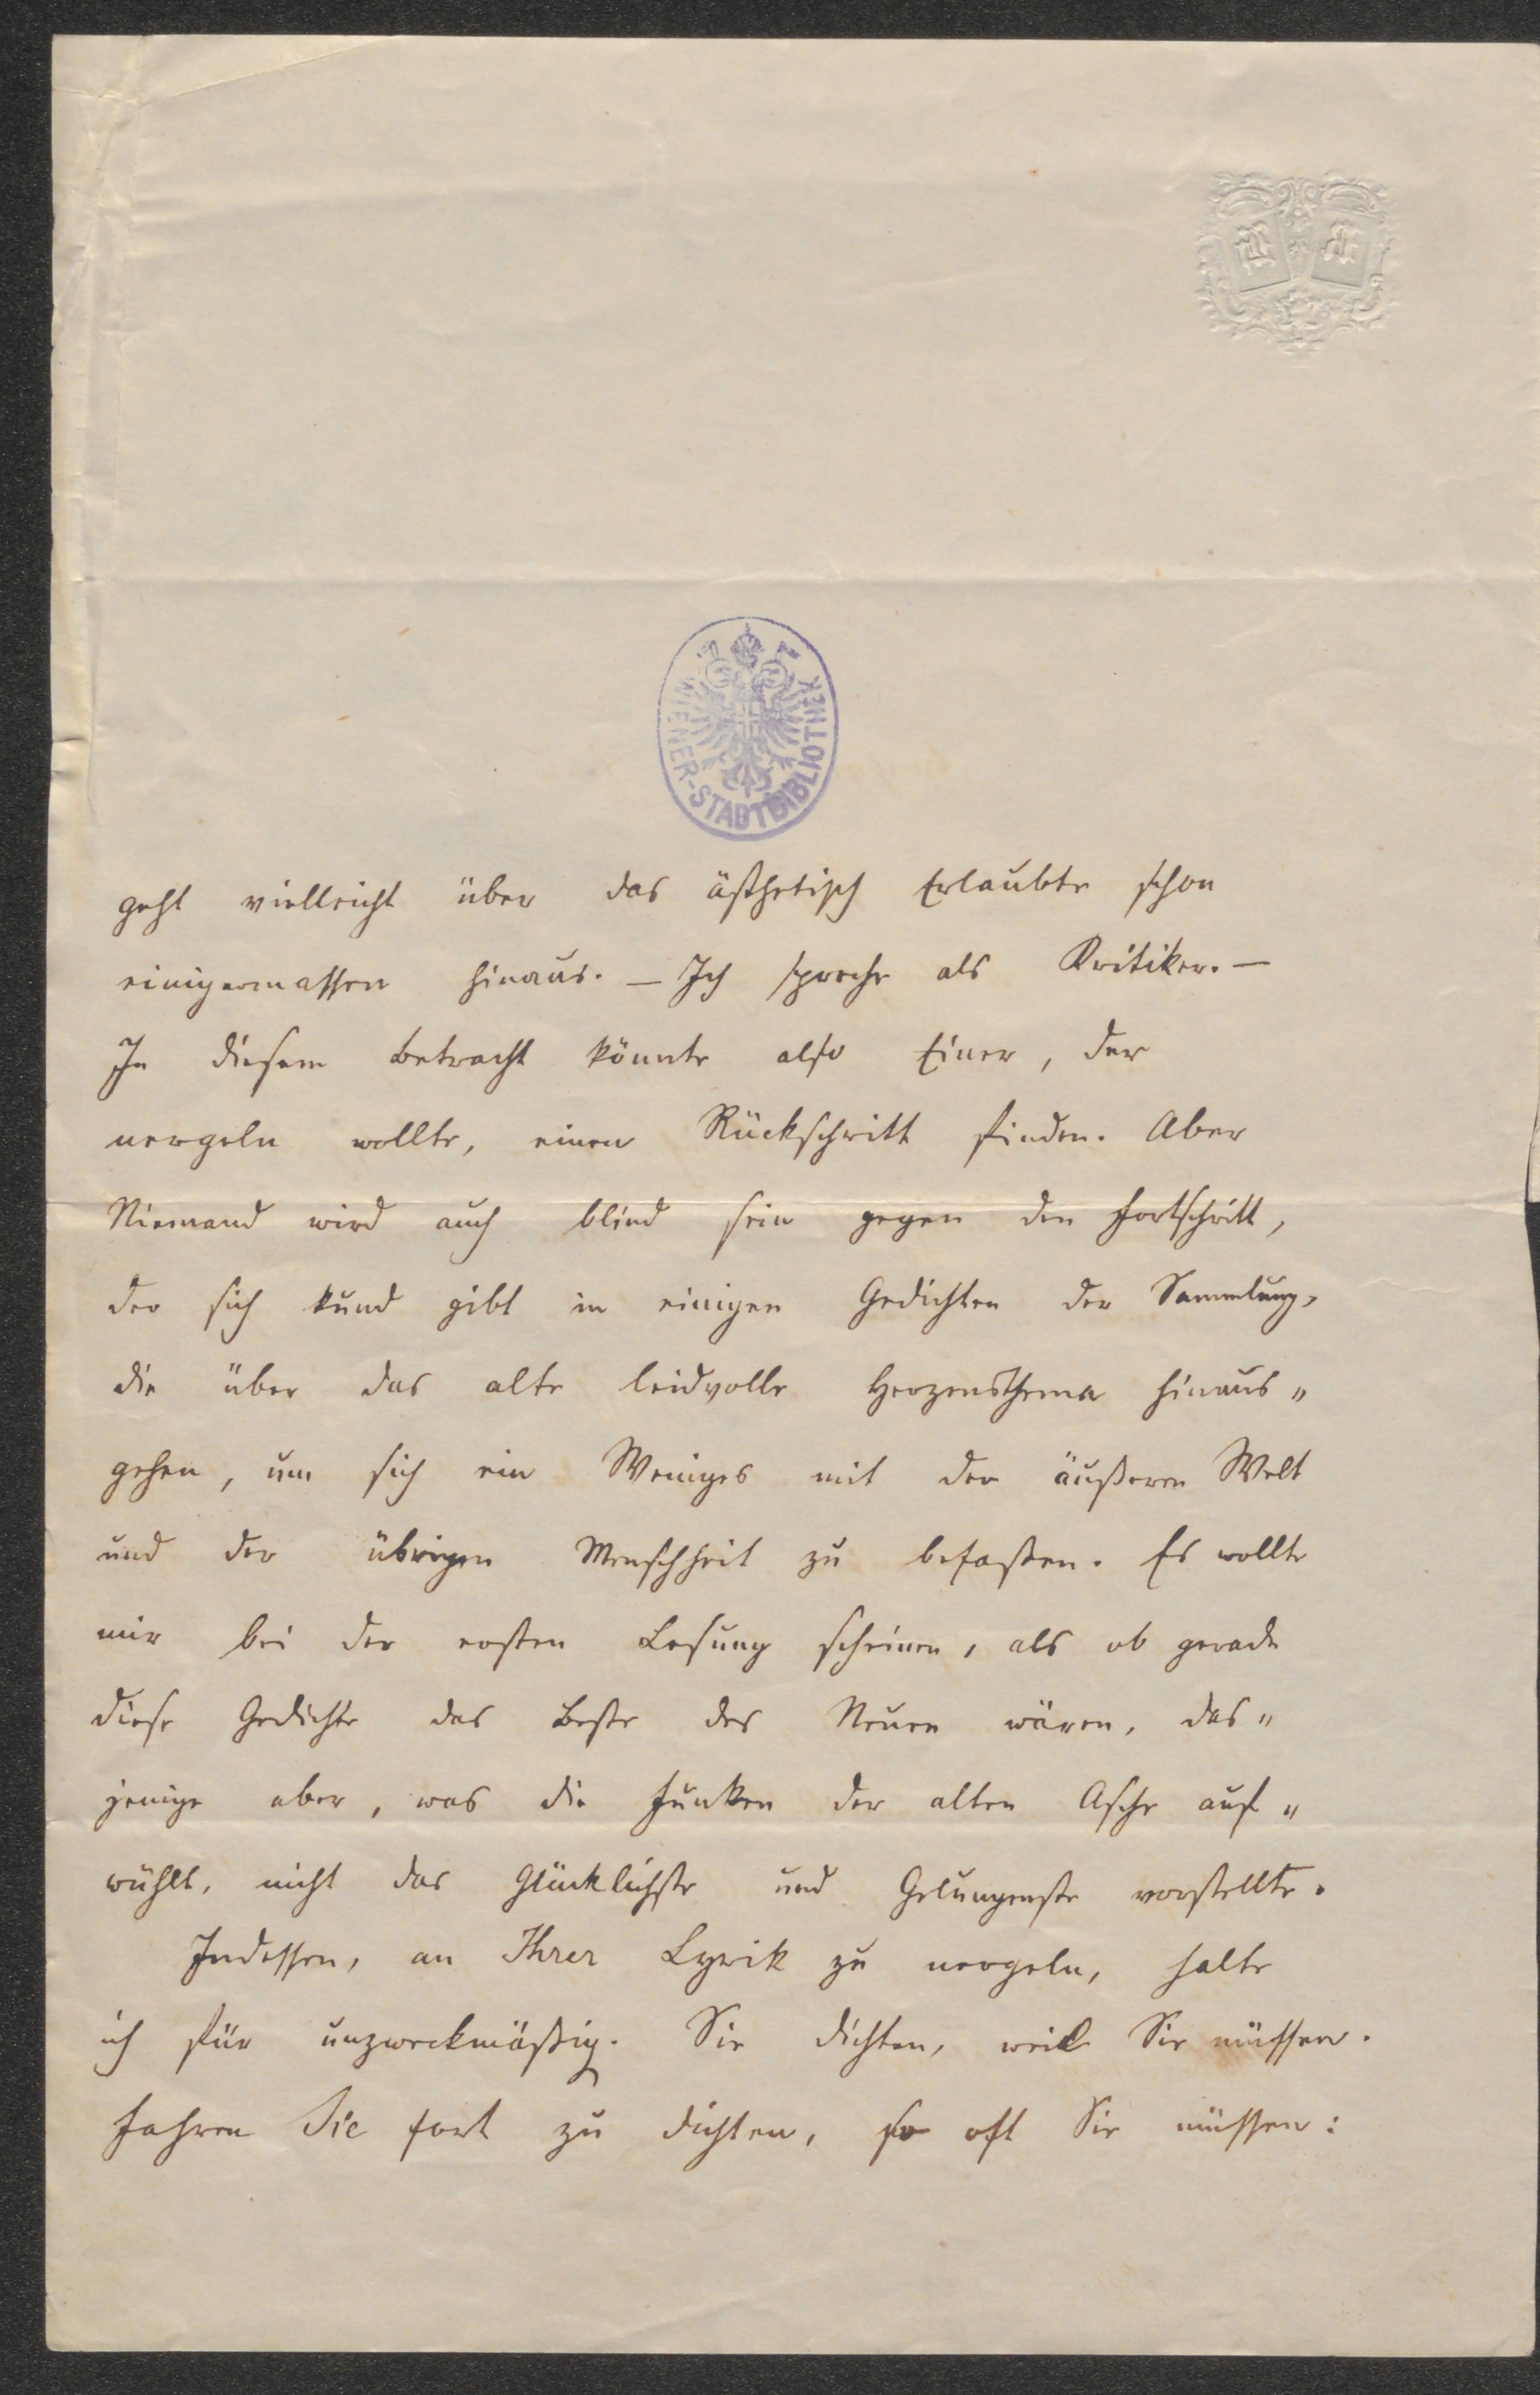 WIENER-STADTBIBLIOTHEK
geht vielleicht über das ästhetisch Erlaubte schon
einigermassen hinaus. — Ich spreche als Kritiker. —
In diesem Betracht könnte also Einer, der
nergeln wollte, einen Rückschritt finden. Aber
Niemand wird auch blind sein gegen den Fortschritt,
der sich kund gibt in einigen Gedichten der Sammlung,
die über das alte leidvolle Herzensthema hinaus„
gehen, um sich ein Weniges mit der äußeren Welt
und der übrigen Menschheit zu befaßen. Es wollte
mir bei der ersten Lesung scheinen, als ob gerade
diese Gedichte das Beste des Neuen wären, das„
jenige aber, was die Funken der alten Asche auf„
wühlt, nicht das Glücklichste und Gelungenste vorstellte.
Indessen, an Ihrer Lyrik zu nergeln, halte
ich für unzweckmäßig. Sie dichten, weil Sie müssen.
Fahren Sie fort zu dichten, so oft Sie müssen: